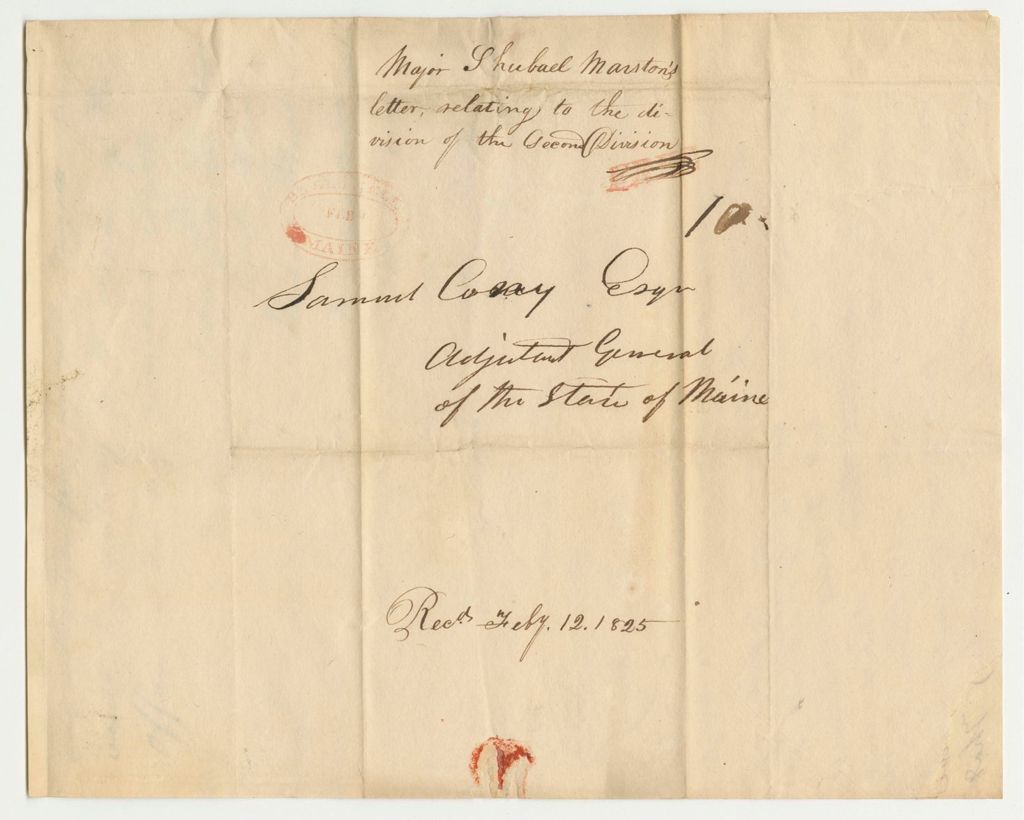 Major Shubael Marston's
letter, relating to the di-
vision of the Second Division
10
FEB
MAINE
Samuel Cony Esqr
Adjutant General
of the State of Maine
Recd. Feby. 12. 1825